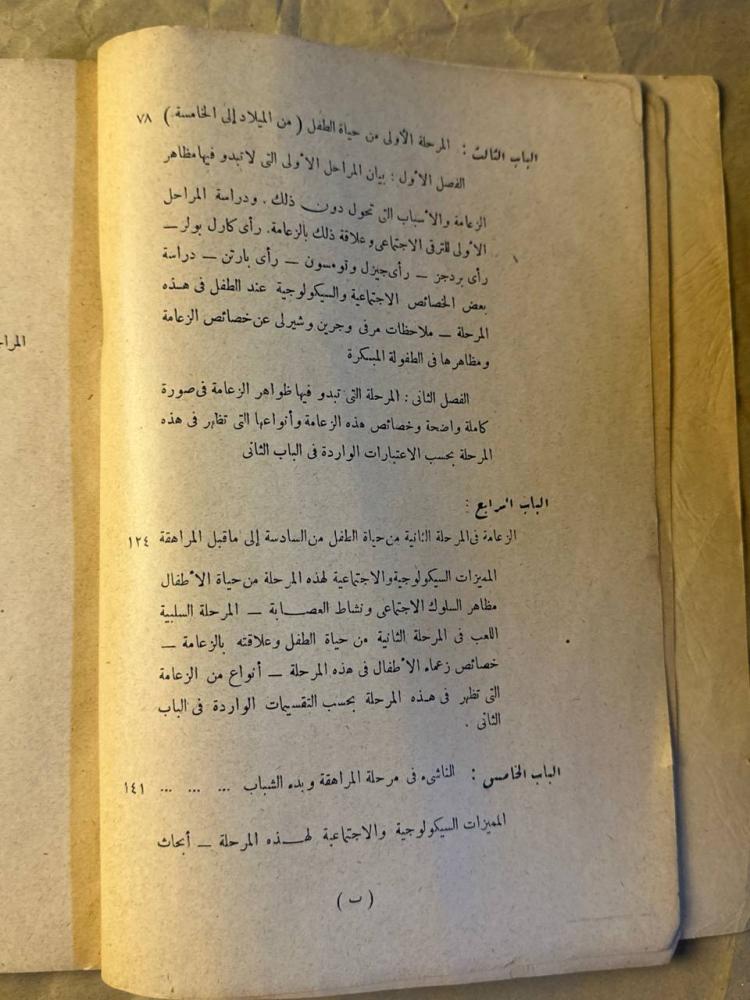 الباب الثالث : المرحلة الأولى من حياة الطفل ( من الميلاد إلى الخامسة ) ٧٨
الفصل الأول : بيان المراحل الأولى التى لا تبدو فيها مظاهر
الزعامة والأسباب التى تحول دون ذلك . ودراسة المراحل
الأولى للترقى الاجتماعى وعلاقة ذلك بالزعامة. رأى كارل بولر —
رأى بردجز — رأى جيزل وتومسون — رأى بارتن — دراسة
بعض الخصائص الاجتماعية والسيكولوجية عند الطفل فى هذه
المرحلة — ملاحظات مرفى وجرين وشيرلى عن خصائص الزعامة
ومظاهرها فى الطفولة المبكرة
الفصل الثانى : المرحلة التى تبدو فيها ظواهر الزعامة فى صورة
كاملة واضحة وخصائص هذه الزعامة وأنواعها التى تظهر فى هذه
المرحلة بحسب الاعتبارات الواردة فى الباب الثانى
الباب الرابع :
الزعامة فى المرحلة الثانية من حياة الطفل من السادسة إلى ماقبل المراهقة ١٢٤
المميزات السيكولوجية والاجتماعية لهذه المرحلة من حياة الأطفال
مظاهر السلوك الاجتماعى ونشاط العصابة — المرحلة السلبية
اللعب فى المرحلة الثانية من حياة الطفل وعلاقته بالزعامة —
خصائص زعماء الأطفال فى هذه المرحلة — أنواع من الزعامة
التى تظهر فى هذه المرحلة بحسب التقسيمات الواردة فى الباب
الثانى .
الباب الخامس : الناشىء فى مرحلة المراهقة وبدء الشباب ... ... ... ١٤١
المميزات السيكولوجية والاجتماعية لهذه المرحلة — أبحاث
( ب )